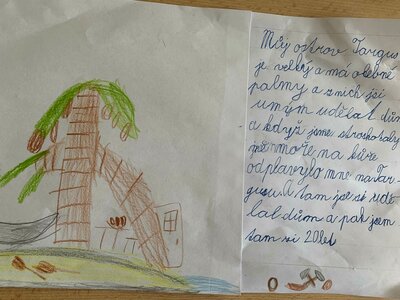 Můj ostrov Targus
je velký a má olebné
palmy a z nich jsi
umým udělat dům
a když jsme stroskotaly
moře na kůře
odplavylo mne na Tar-
gusu. A tam jsi udě
lal dům a pak jsem
tam si 20let